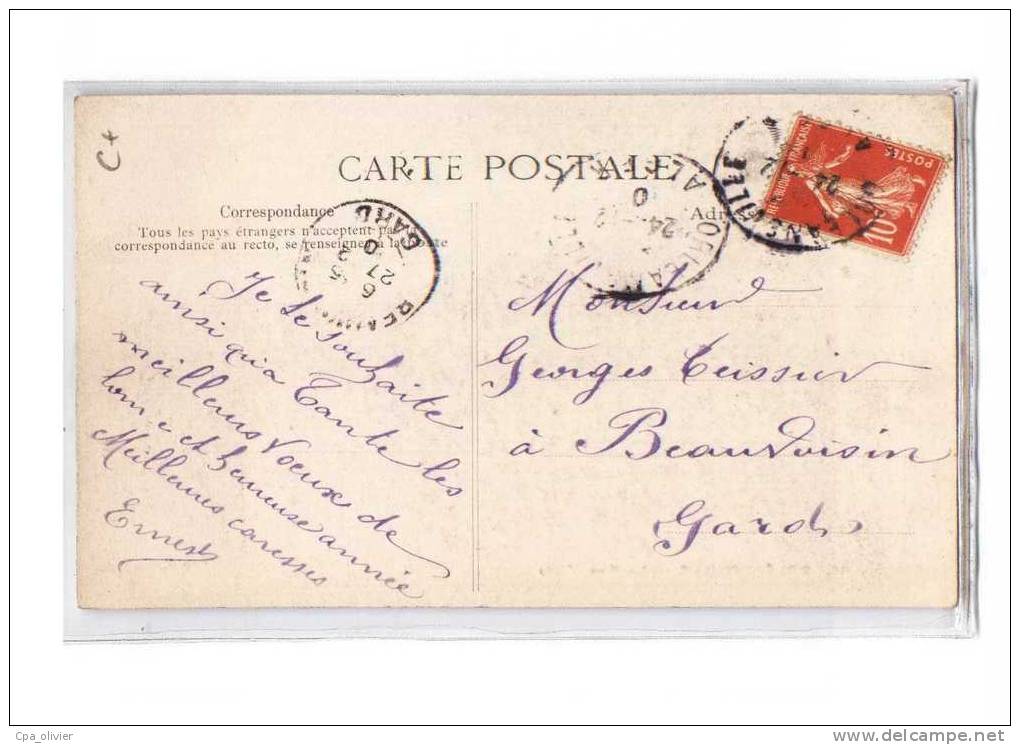 C+
CARTE POSTALE
Correspondance
Tous les pays étrangers n'acceptent pas
correspondance au recto, se renseigner à la Poste
Je te souhaite
ainsi qu'a Tante les
meilleurs Voeux de
bonne et heureuse année
Meilleures caresses
Ernest
Adre
Monsieur
Georges Teissier
à Beauvoisin
Gard
GARD
6
27
ORLEANSVILLE
24
AL
ANSVILLE
24
12
REPUBLIQUE FRANÇAISE
POSTES
10
Cpa_olivier
www.delcampe.net